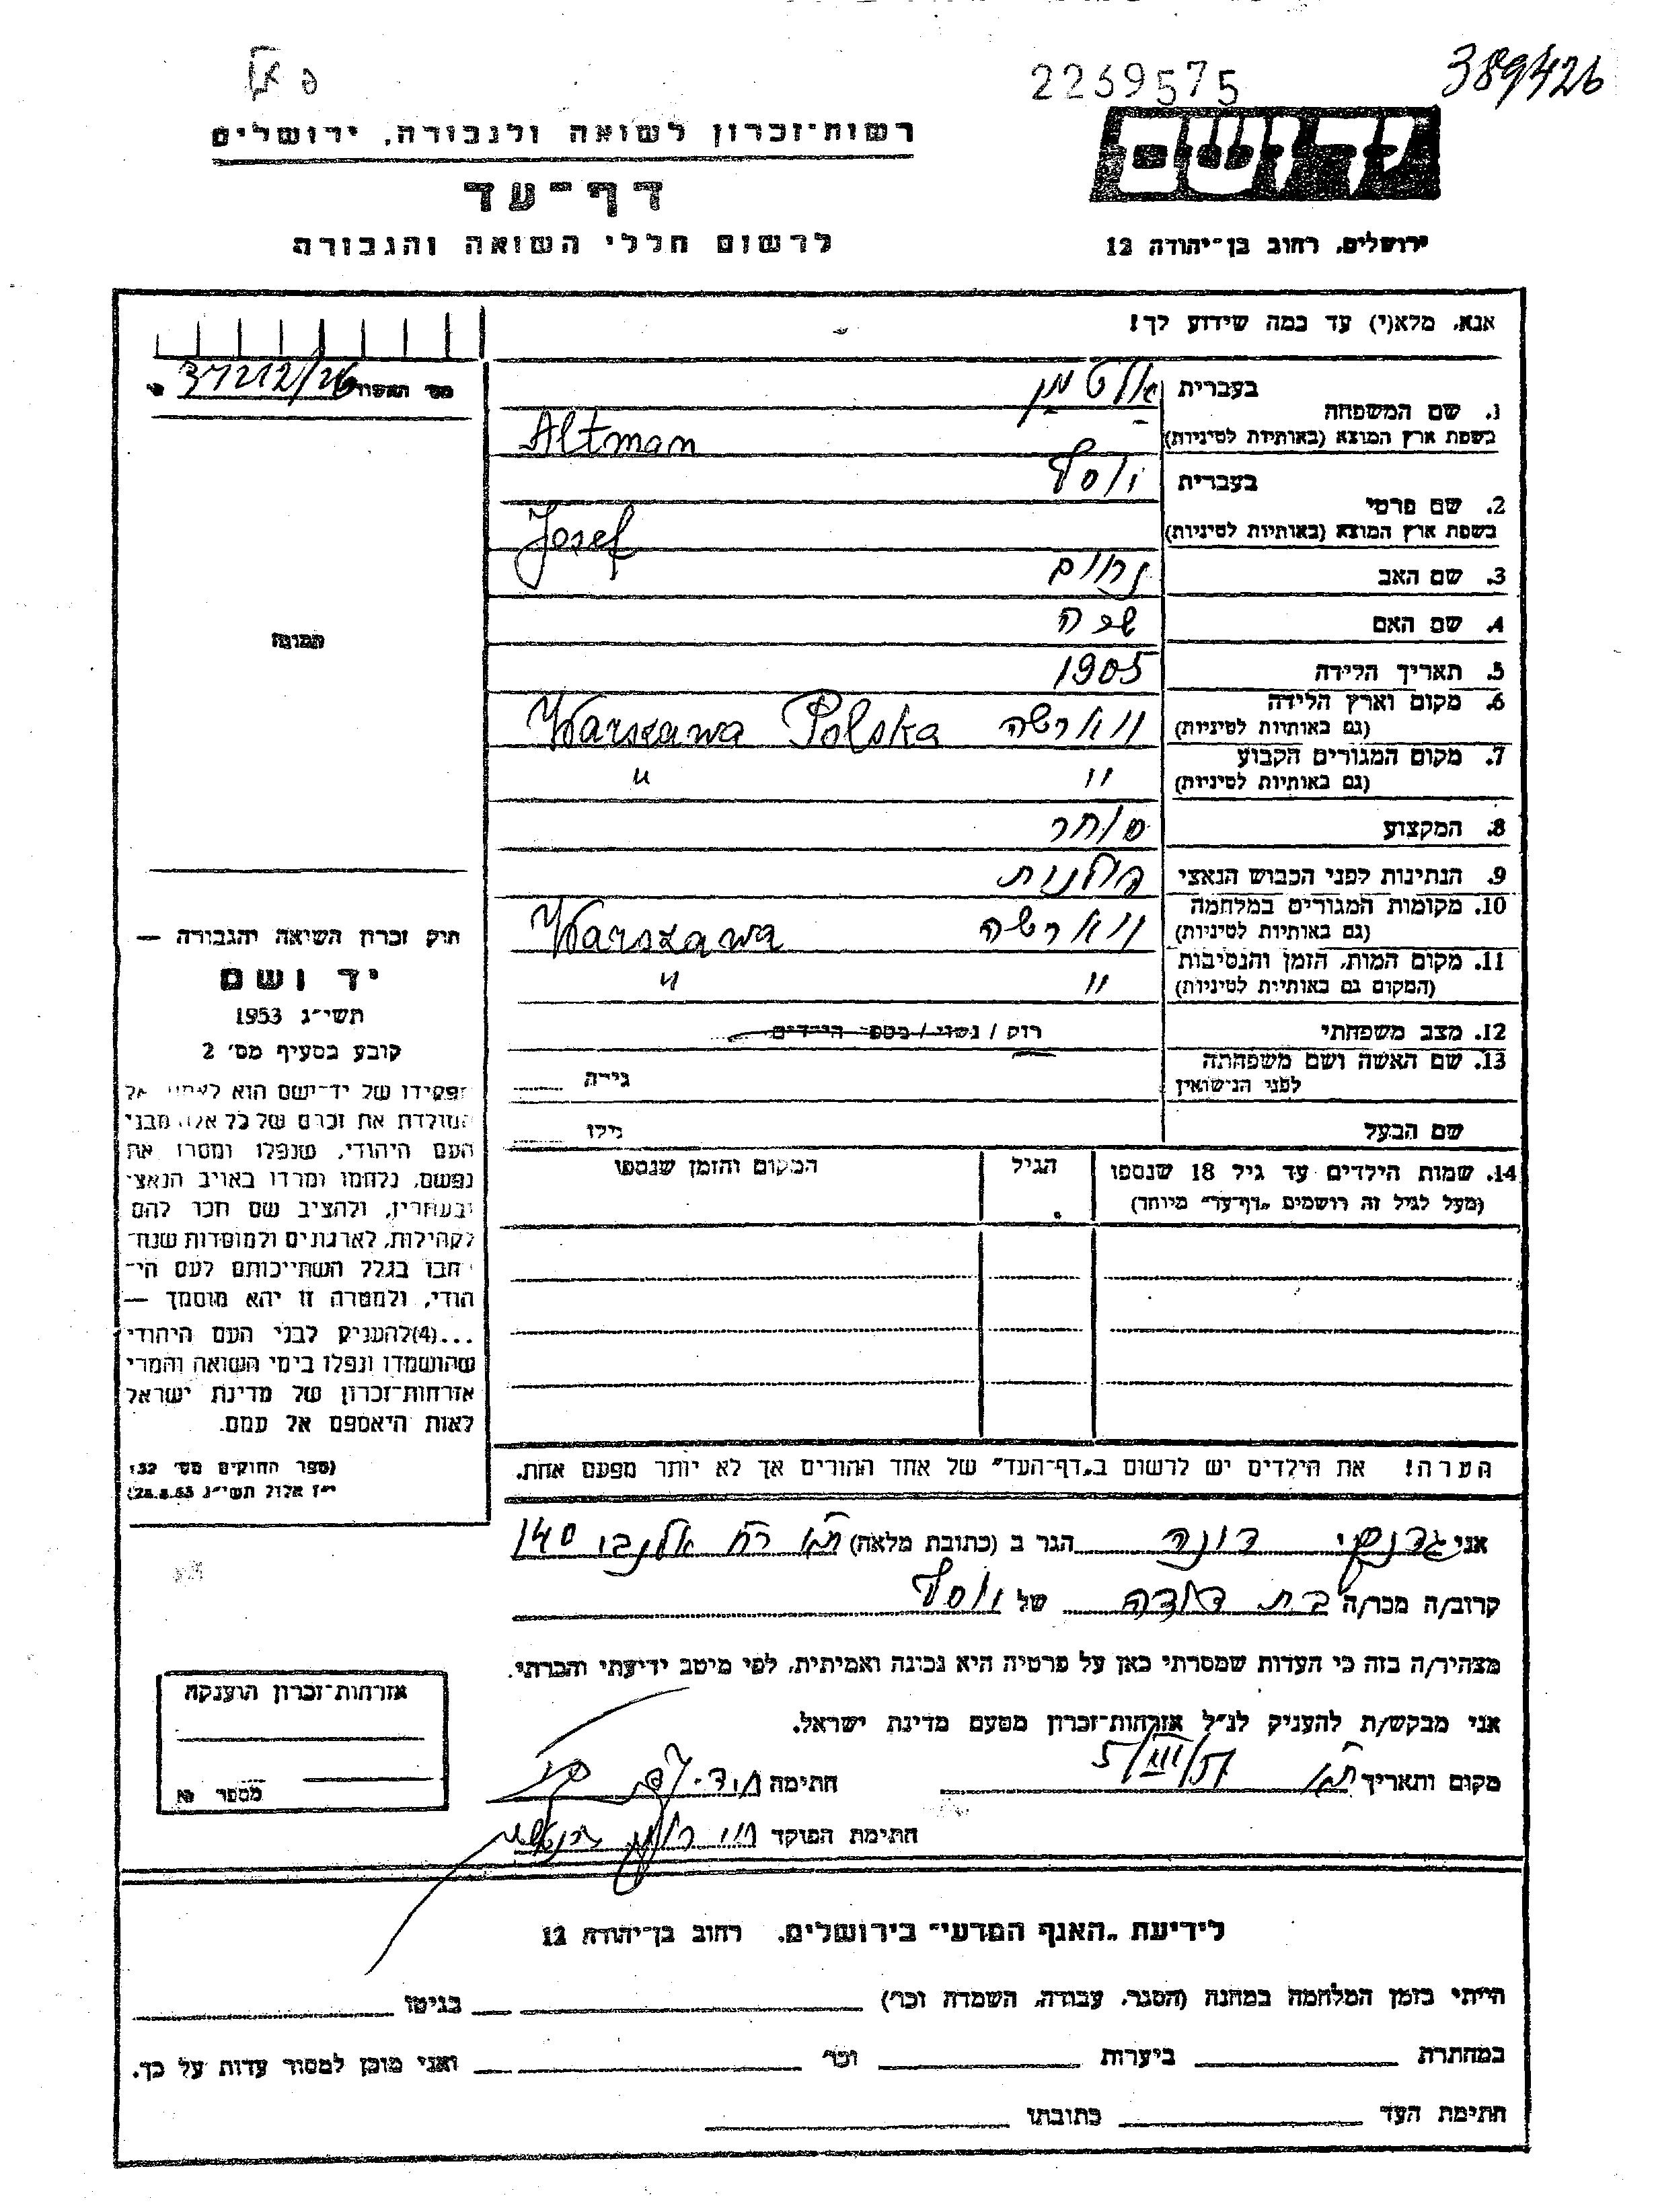 2269575
389426
רשות-זכרון לשואה ולגבורה, ירושלים
יד ושם
דף-עד
לרשום חללי השואה והגבורה
ירושלים, רחוב בן-יהודה 12
אנא, מלא(י) עד כמה שידוע לך!
מס' תאשור 37212/26
1. שם המשפחה בעברית אלטמן
בשפת ארץ המוצא (באותיות לטיניות) Altman
2. שם פרטי בעברית יוסף
בשפת ארץ המוצא (באותיות לטיניות) Josef
3. שם האב נחום
4. שם האם שפה
5. תאריך הלידה 1905
6. מקום וארץ הלידה ווארשה Warszawa Polska
(גם באותיות לטיניות)
7. מקום המגורים הקבוע " "
(גם באותיות לטיניות)
8. המקצוע סוחר
9. הנתינות לפני הכבוש הנאצי פולנית
10. מקומות המגורים במלחמה ווארשה Warszawa
(גם באותיות לטיניות)
11. מקום המות, הזמן והנסיבות " "
(המקום גם באותיות לטיניות)
12. מצב משפחתי רוק / נשוי / מספר הילדים
13. שם האשה ושם משפחתה גילה
לפני הנישואין
שם הבעל גילו
14. שמות הילדים עד גיל 18 שנספו הגיל המקום והזמן שנספו
(מעל לגיל זה רושמים "דף-עד" מיוחד)
הערה! את הילדים יש לרשום ב"דף-העד" של אחד ההורים אך לא יותר מפעם אחת.
תמונה
חוק זכרון השואה והגבורה —
יד ושם
תשי"ג 1953
קובע בסעיף מס' 2
תפקידו של יד-ושם הוא לאסוף אל
המולדת את זכרם של כל אלה מבני
העם היהודי, שנפלו ומסרו את
נפשם, נלחמו ומרדו באויב הנאצי
ובעוזריו, ולהציב שם וזכר להם
לקהילות, לארגונים ולמוסדות שנח-
רבו בגלל השתייכותם לעם הי-
הודי, ולמטרה זו יהא מוסמך —
...(4) להעניק לבני העם היהודי
שהושמדו ונפלו בימי השואה והמרי
אזרחות-זכרון של מדינת ישראל
לאות היאספם אל עמם.
(ספר החוקים מס' 132
י"ז אלול תשי"ג 28.8.53)
אני דונה הגר ב (כתובת מלאה) ת"א רח' אלנבי 140
קרוב/ה מכר/ה בת דודה של יוסף
מצהיר/ה בזה כי העדות שמסרתי כאן על פרטיה היא נכונה ואמיתית, לפי מיטב ידיעתי והכרתי.
אני מבקש/ת להעניק לנ"ל אזרחות-זכרון מטעם מדינת ישראל.
מקום ותאריך ת"א חתימה
חתימת הפוקד
אזרחות-זכרון הוענקה
מספר
לידיעת "האגף המדעי" בירושלים, רחוב בן-יהודה 12
הייתי בזמן המלחמה במחנה (הסגר, עבודה, השמדה וכר') בגיטו
במחתרת ביערות וכר' ואני מוכן למסור עדות על כך.
חתימת העד כתובתו